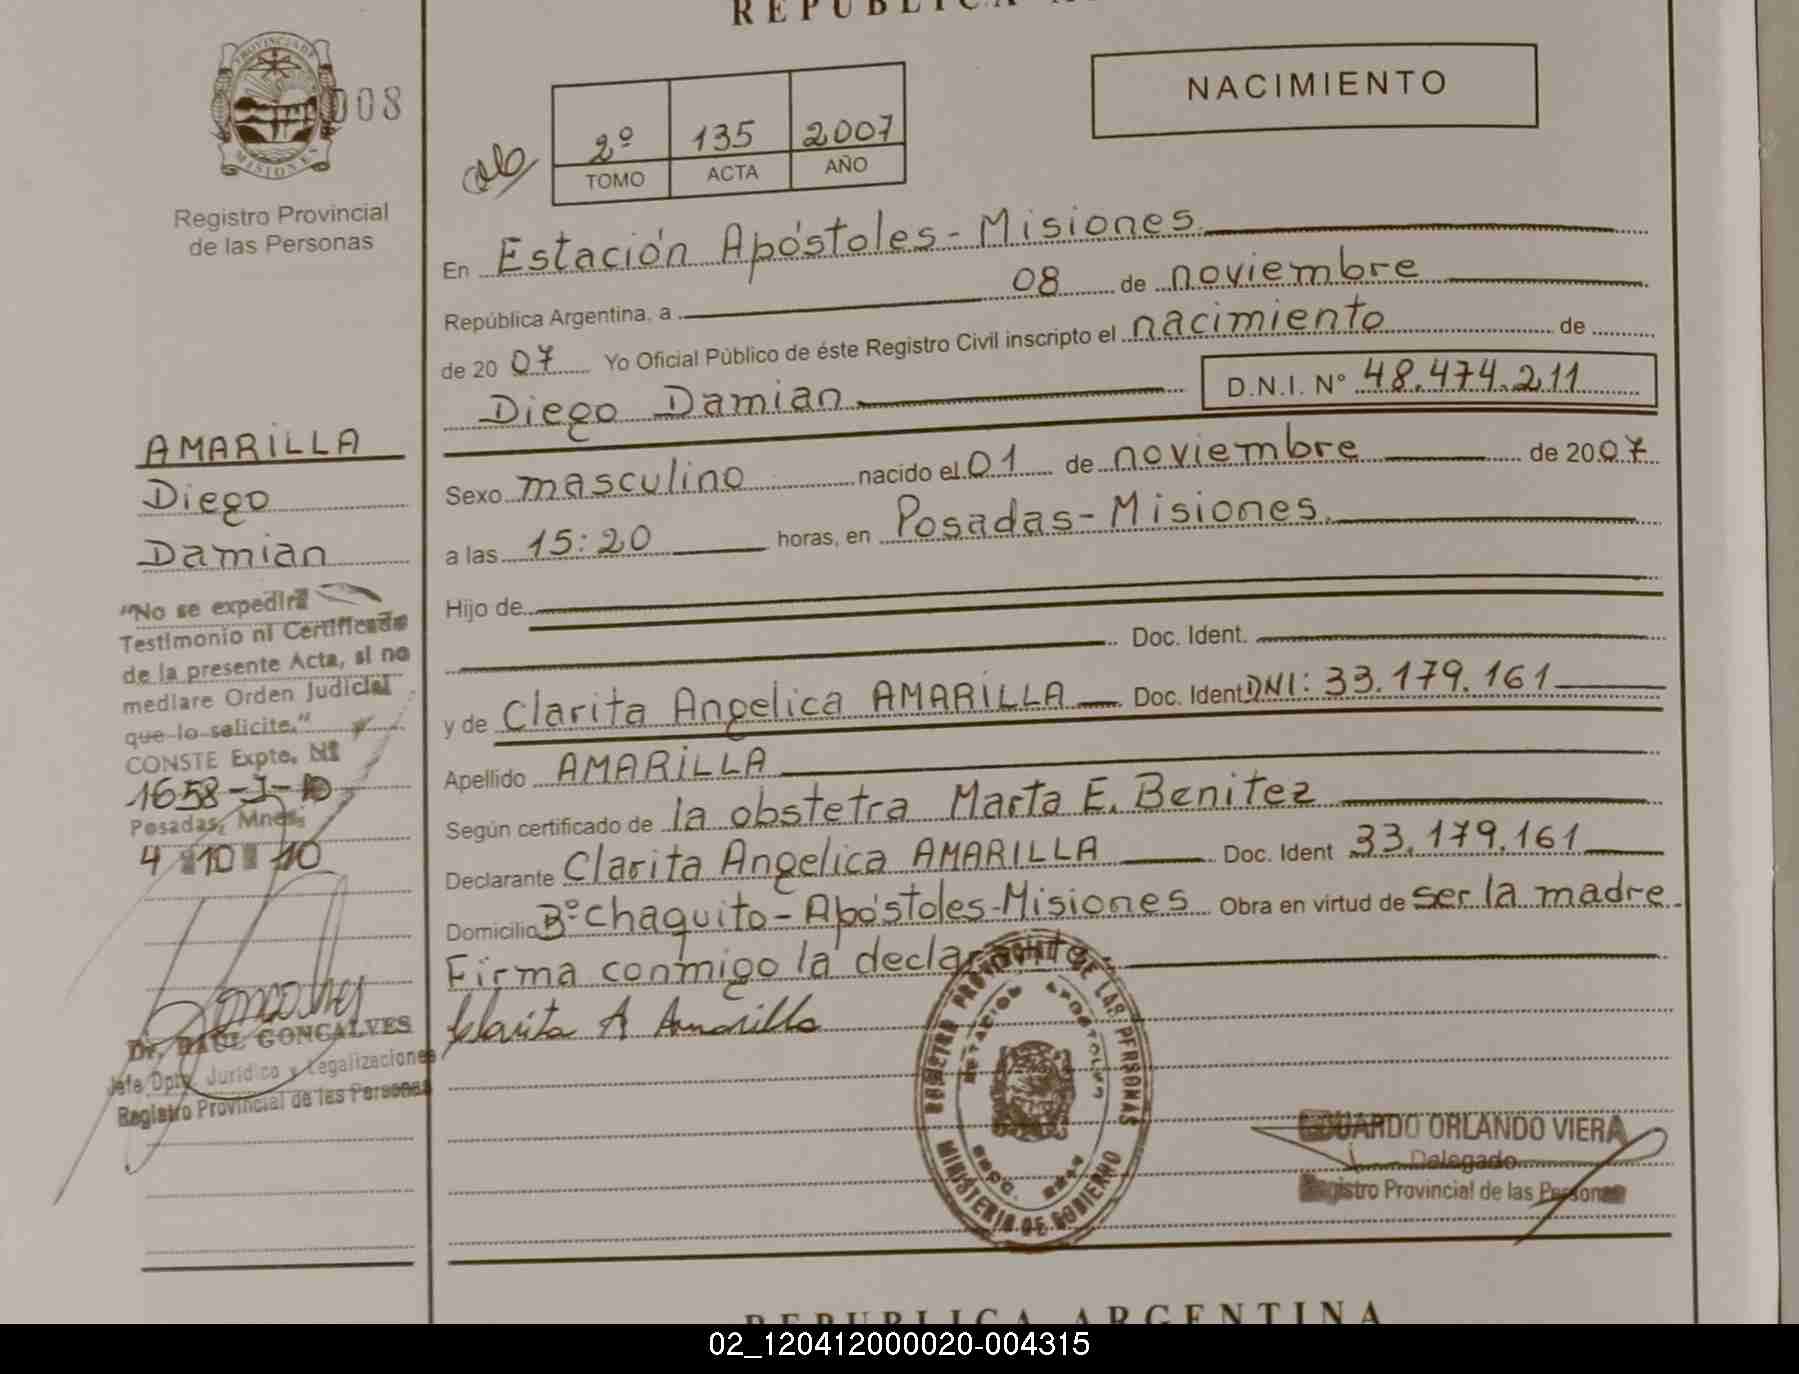 REPUBLICA
PROVINCIA DE
MISIONES
008
Registro Provincial
de las Personas
2º 135 2007
TOMO ACTA AÑO
NACIMIENTO
En Estación Apóstoles - Misiones.
República Argentina, a 08 de noviembre
de 2007 Yo Oficial Público de éste Registro Civil inscripto el nacimiento de
Diego Damian D.N.I. Nº 48.474.211
Sexo masculino nacido el 01 de noviembre de 2007
a las 15:20 horas, en Posadas - Misiones.
Hijo de
Doc. Ident.
y de Clarita Angelica AMARILLA Doc. Ident DNI: 33.179.161
Apellido AMARILLA
Según certificado de la obstetra Marta E. Benitez
Declarante Clarita Angelica AMARILLA Doc. Ident 33.179.161
Domicilio Bº Chaquito - Apóstoles - Misiones Obra en virtud de ser la madre.
Firma conmigo la declarante.
Clarita A Amarilla
AMARILLA
Diego
Damian
"No se expedirá
Testimonio ni Certificado
de la presente Acta, si no
mediare Orden Judicial
que lo solicite."
CONSTE Expte. Nº
1658-J-10
Posadas, Mnes,
4 10 10
Dr. RAUL GONCALVES
Jefe Dpto. Jurídico y Legalizaciones
Registro Provincial de las Personas
REGISTRO PROVINCIAL DE LAS PERSONAS
ESTACION APOSTOLES
MINISTERIO DE GOBIERNO
EDUARDO ORLANDO VIERA
Delegado
Registro Provincial de las Personas
REPUBLICA ARGENTINA
02_120412000020-004315